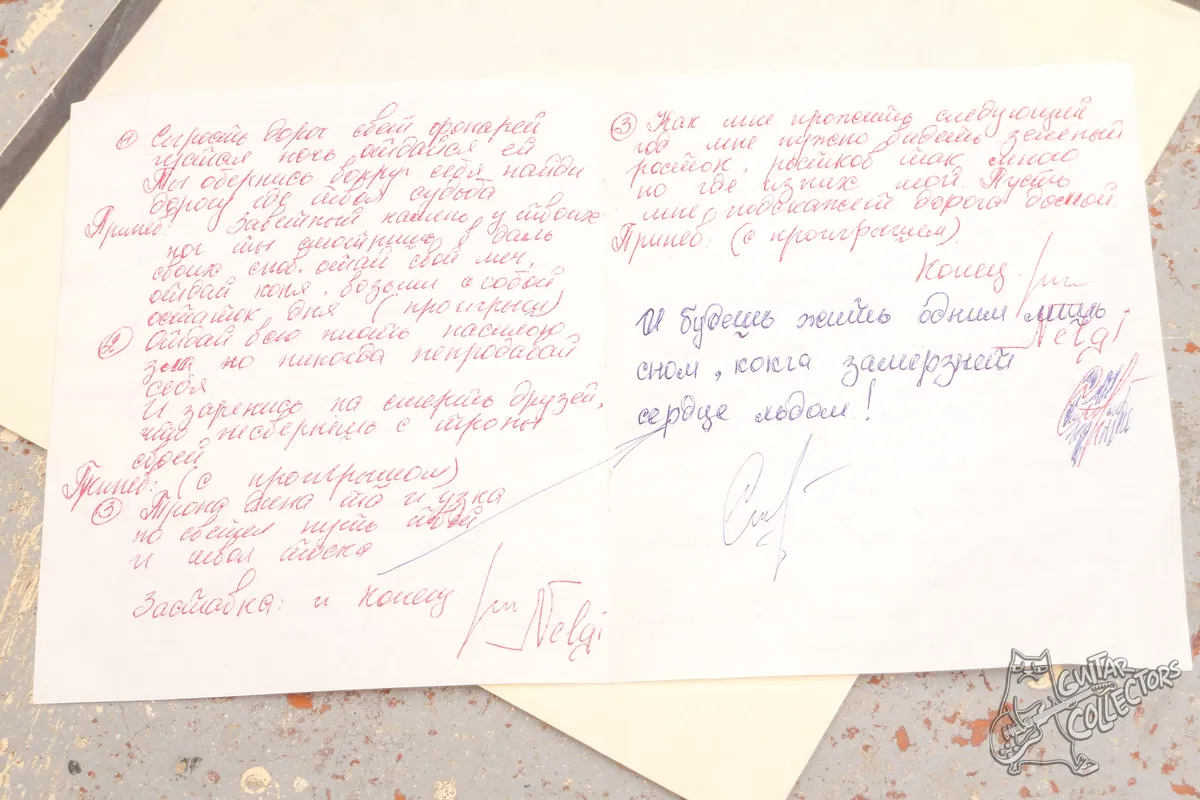 ① Скрость дорог свет фонарей
густая ночь отдайся ей
Ты обернись вокруг себя найди
дорогу где твоя судьба
Припев: Заветный камень у твоих
ног ты смотришь в даль
своих снов. отдай свой меч,
отдай коня. возьми с собой
остаток дня (проигрыш)
② Отдай всю
но никогда непродавай
себя
И заренись на смерть друзей,
что несвернешь с тропы
своей
Припев: (с проигрышом)
③ Тропа и узка
но светел путь твой
и твоя тоска
Заставка: и конец
Nevgi
③ Как мне прожить следующий
год мне нужно видеть зеленый
росток, ростков так много
но где из них мой. Пусть
мне подскажет дорога босой.
Припев: (с проигрышем).
Конец.
Nevgi
И будешь жить одним лишь
сном, кокга замерзнет
сердце льдом!
GUITAR
COLLECTORS